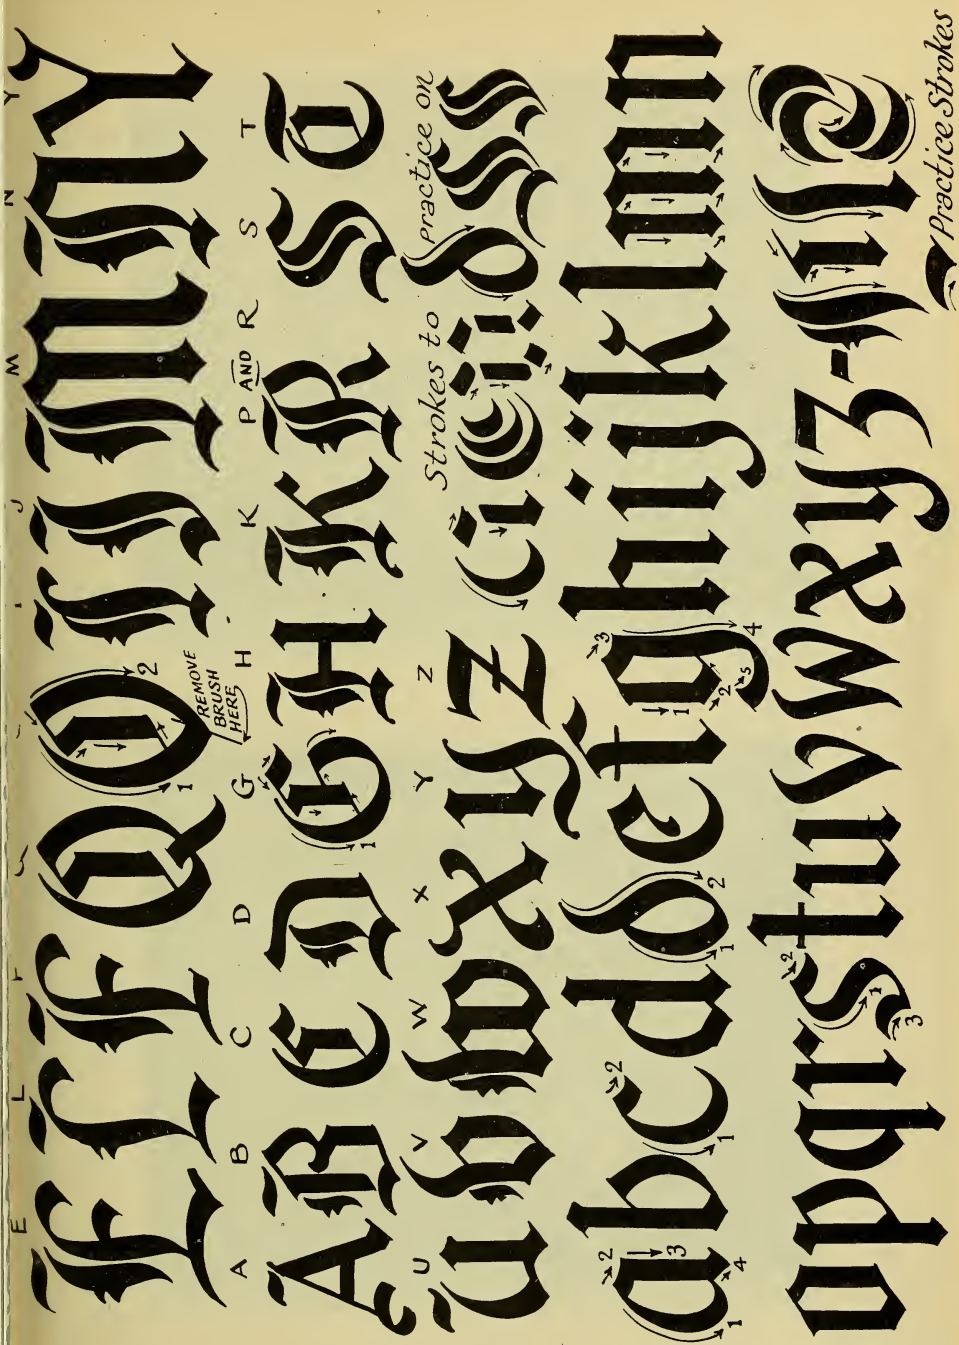 E L F I J M N Y
E L F Q O I J M N Y
1 2
REMOVE
BRUSH
HERE
A B C D G H K P AND R S T
A B C D G H K R S T
1
U V W X Y Z Strokes to practice on
U V W X Y Z
a b c d d e f g h i j k l m n
1 2 3 4 1 2 1 2 1 2 3 4 5
o p q r s t u v w x y z -
1 2 3
Practice Strokes